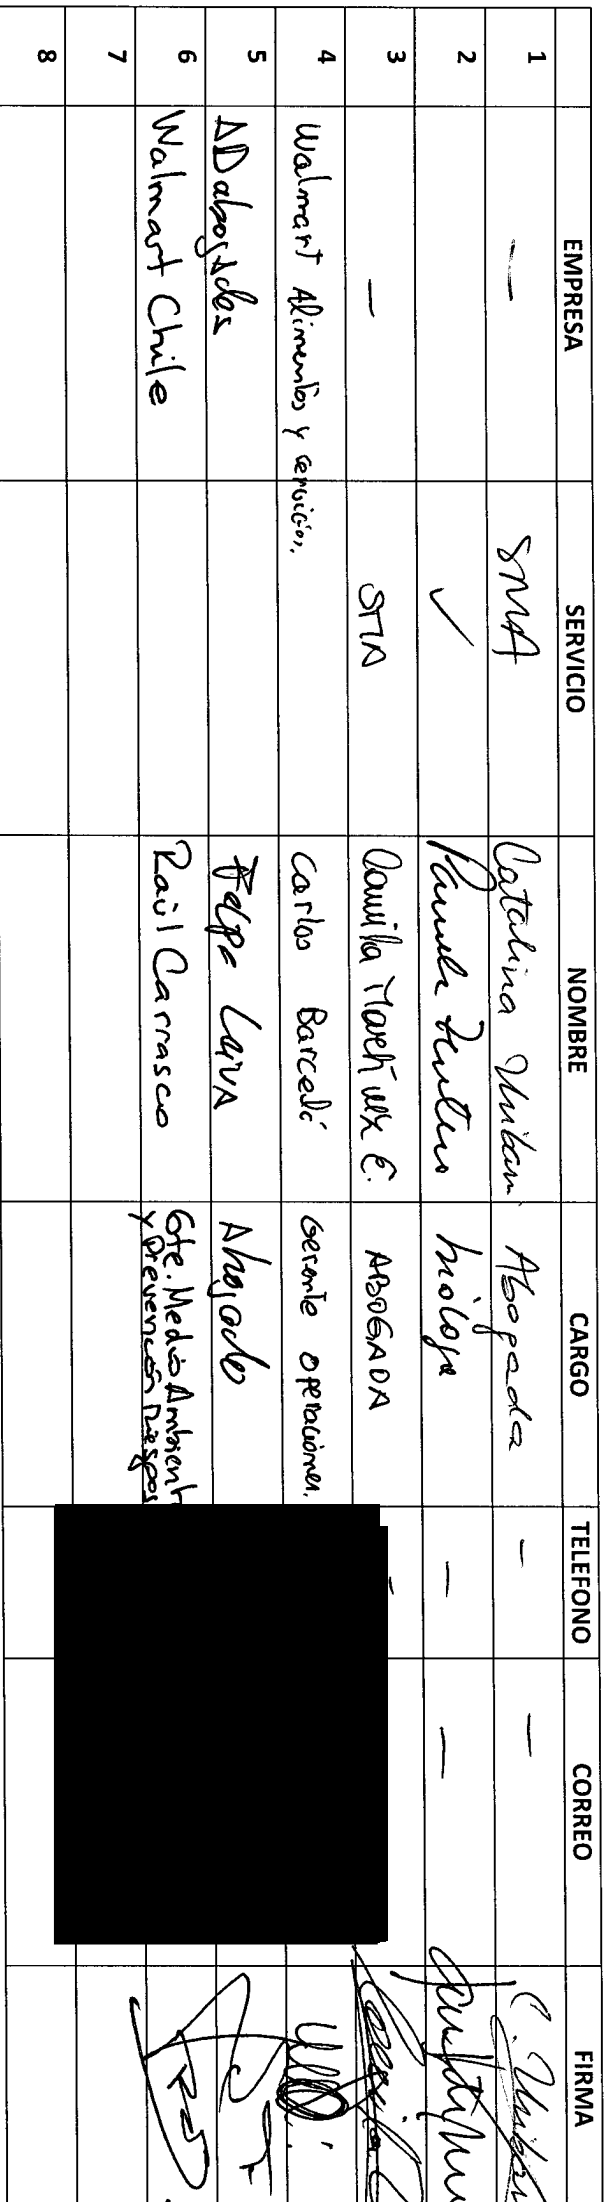 EMPRESA SERVICIO NOMBRE CARGO TELEFONO CORREO FIRMA
1 — SMA Catalina Abogada — —
2 ✓ bióloga — —
3 — SMA Camila Martínez E. ABOGADA
4 Walmart Alimentos y servicios. Carlos Barceló Gerente operaciones.
5 AD abogados Felipe Leiva Abogado
6 Walmart Chile Raúl Carrasco Gte. Medio Ambiente
y Prevención Riesgos
7
8